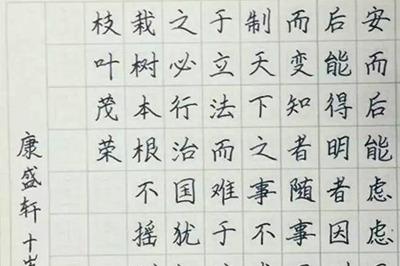 安而后能虑虑
后能得明者因
而变知者随事
制天下之事不
于立法而难于
之必行治国犹
栽树本根不摇
枝叶茂荣
康盛轩 十